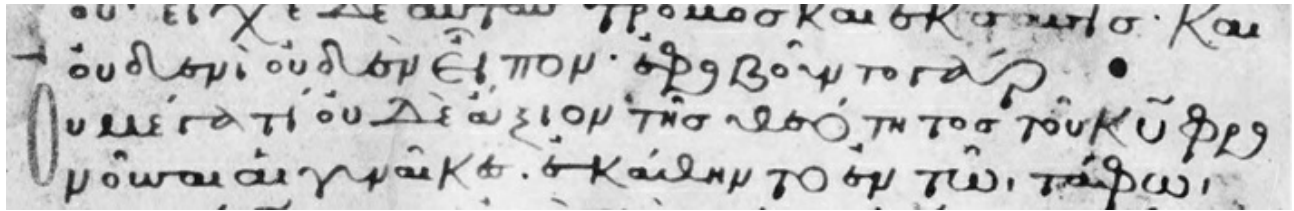 ου· εἶχε δὲ αὐτὰς τρόμος καὶ ἔκστασις· καὶ
ὀυδενὶ ὀυδὲν εἶπον· ἐφοβοῦντο γάρ •
Ουμέγα τί ὀυδὲ ἄξιον τῆς θεότητος τοῦ κῦ φρο
νοῦσαι ἁι γυναῖκες. ἐκάθηντο ἐν τῶι τάφωι